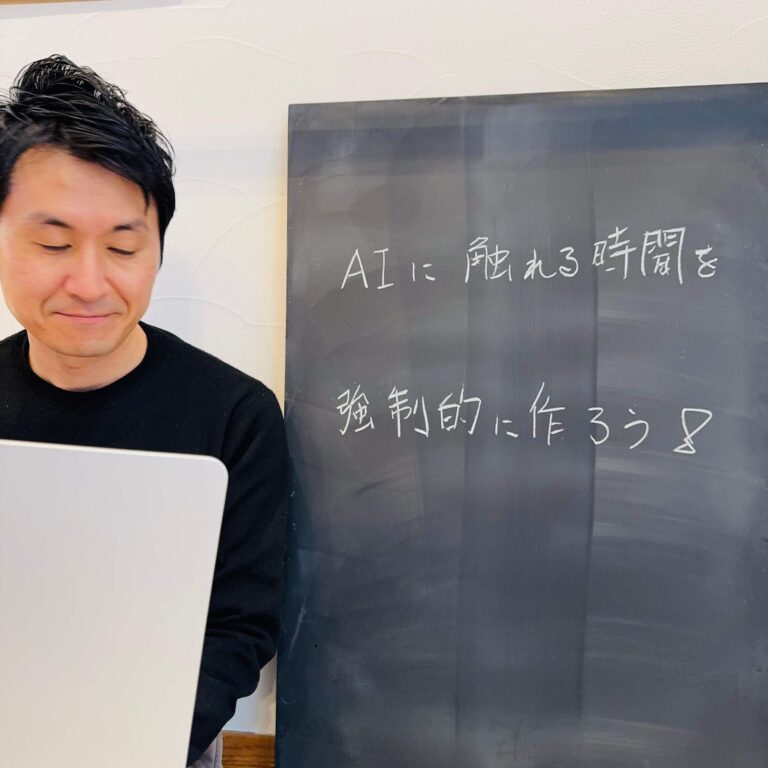 AIに触れる時間を
強制的に作ろう!